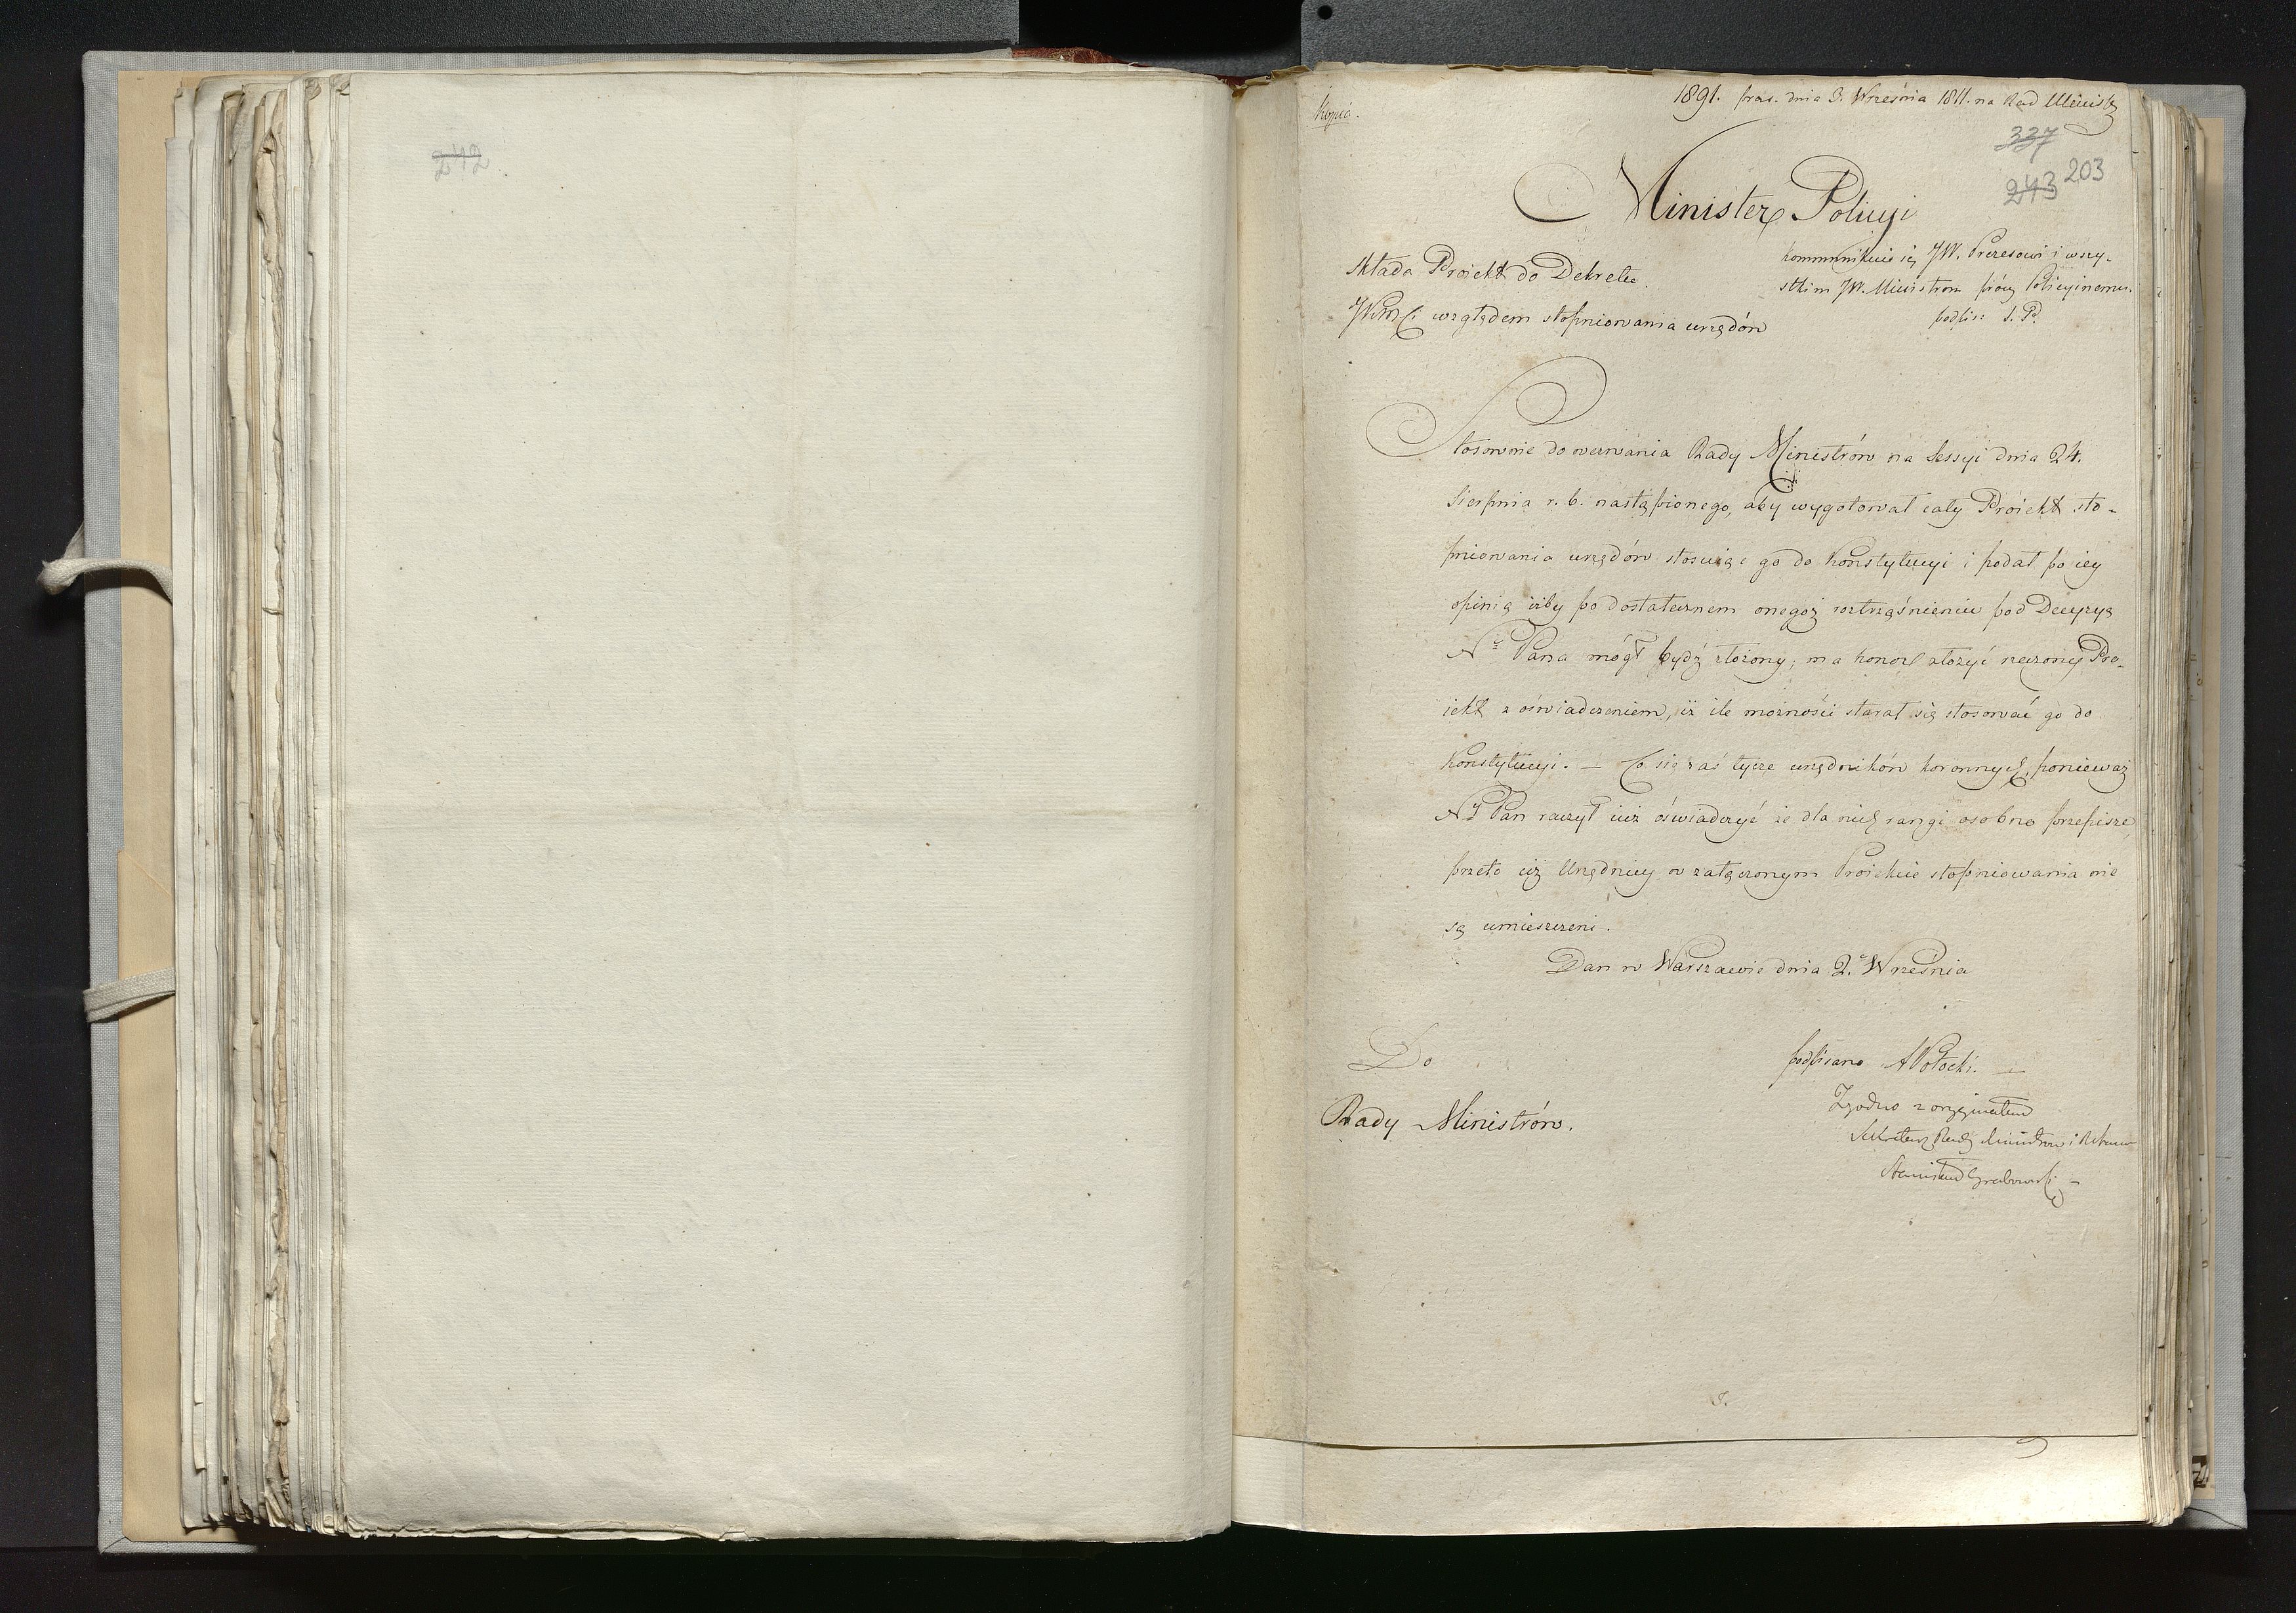 242
Kopia.
1891. pras. dnia 3. Września 1811. na Rad Ministr
337
243 203
Minister Policyi
Składa Proiekt do Dekretu
JKMci względem stopniowania urzędów
kommunikuie się JW. Prezesowi i wszy-
stkim JW. Ministrom prócz Policyinemu.
podpis: S. P.
Stosownie do wezwania Rady Ministrów na Sessyi dnia 24.
Sierpnia r. b. nastąpionego, aby wygotował cały Proiekt sto-
pniowania urzędów stosuiąc go do Konstytucyi i podał po iey
opinią iżby po dostatecznem onegoż roztrząśnieniu pod Decyzyą
Nго Pana mógł bydź złożony; ma honor złożyć rzeczony Pro-
iekt z oświadczeniem, iż ile możności starał się stosować go do
Konstytucyi. — Co się zaś tycze urzędników koronnych, ponieważ
Ny Pan raczył iuż oświadczyć że dla nich rangi osobno przepisze,
przeto ciż Urzędnicy w załączonym Proiekcie stopniowania nie
są umieszczeni.
Dan w Warszawie dnia 2. Września
Do
Rady Ministrów.
podpisano A Potocki. —
Zgodno z oryginałem
Sekretarz Rady Ministrów i
Stanisław Grabowski